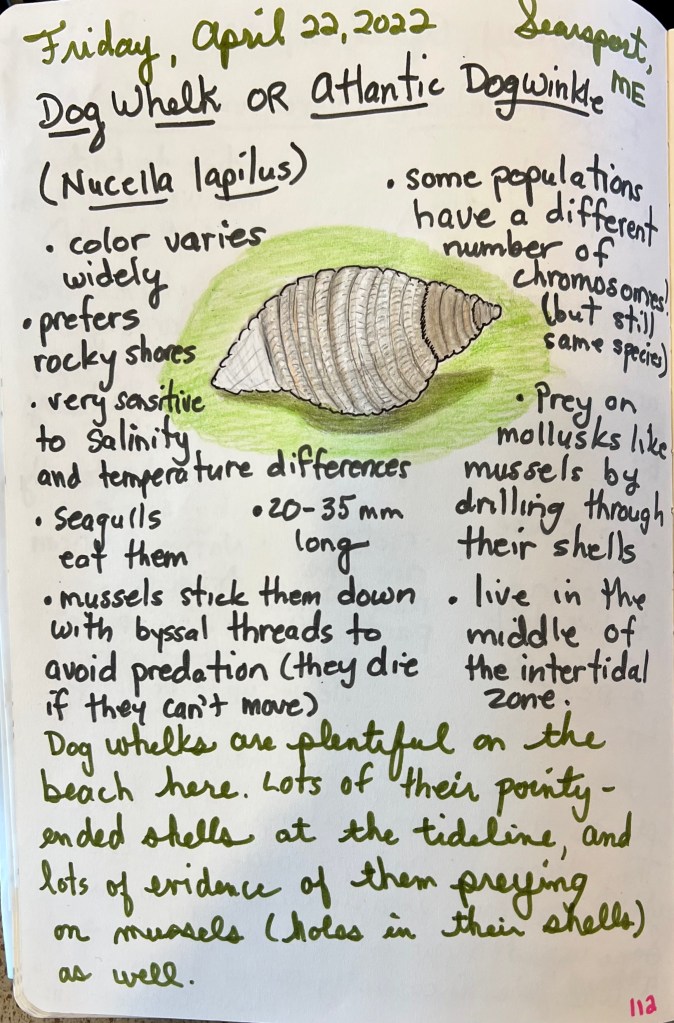 Friday, April 22, 2022 Searsport, ME
Dog Whelk OR Atlantic Dogwinkle
(Nucella lapilus)
• color varies
widely
• prefers
rocky shores
• very sensitive
to salinity
and temperature differences
• seagulls
eat them
• 20-35 mm
long
• mussels stick them down
with byssal threads to
avoid predation (they die
if they can't move)
• some populations
have a different
number of
chromosomes!
(but still
same species)
• Prey on
mollusks like
mussels by
drilling through
their shells
• live in the
middle of
the intertidal
zone.
Dog whelks are plentiful on the
beach here. Lots of their pointy-
ended shells at the tideline, and
lots of evidence of them preying
on mussels (holes in their shells)
as well.
112